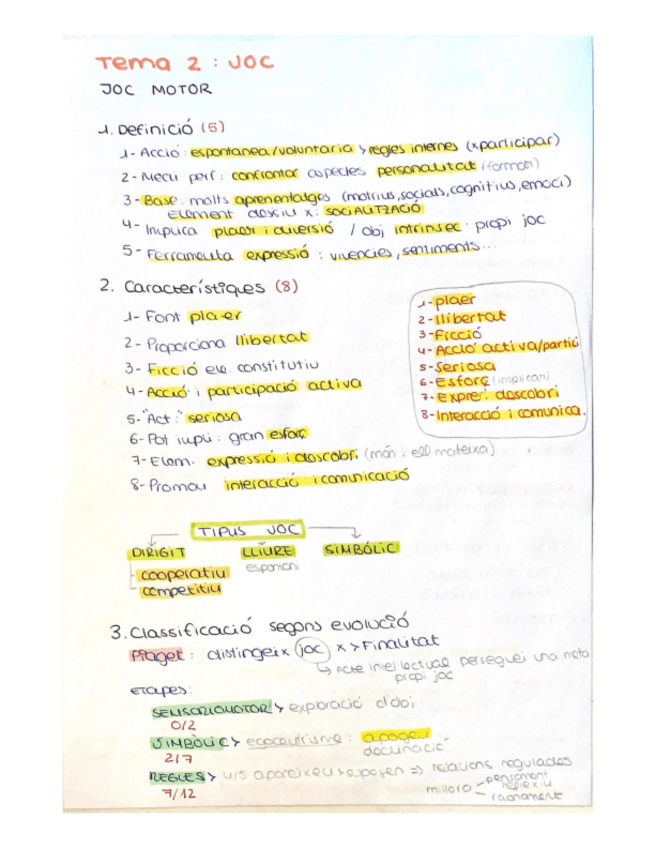 Tema 2 : JOC
JOC MOTOR
1. Definició (5)
1- Acció: espontanea/voluntaria > regles internes (x participar)
2- perf: confrontar aspectes personalitat (formen)
3- Base: molts aprenentatges (motrius, socials, cognitius, emoci)
Element x: SOCIALITZACIÓ
4- Implica plaer i diversió / obj intrínsec: propi joc
5- Ferramenta expressió: vivencies, sentiments...
2. Característiques (8)
1- Font plaer
2- Proporciona llibertat
3- Ficció ele. constitutiu
4- Acció i participació activa
5- "Act:" seriosa
6- Pot impli: gran esforç
7- Elem. expressió i descobri (món i ell mateixa)
8- Promou interacció i comunicació
1- plaer
2- llibertat
3- Ficció
4- Acció activa/partici
5- Seriosa
6- Esforç (implicari)
7- Expre. descobri
8- Interacció i comunica.
TIPUS JOC
DIRIGIT LLIURE SIMBÒLIC
cooperatiu espontani
competitiu
3. Classificació segons evolució
Piaget: distingeix joc x > Finalitat
Acte intel·lectual persegueix una meta
propi joc
etapes:
SENSORIOMOTOR > exploració d'obj
0/2
SIMBÒLIC > egocentrisme: apogeu
declinació
2/7
REGLES > apareixen => relacions regulades
millora pensament
reflexiu
raonament
7/12